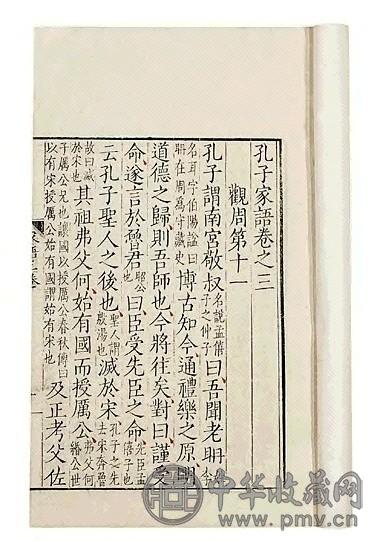 孔子家語卷之三
觀周第十一
孔子謂南宮敬叔名說孟僖子之仲子曰吾聞老耼姓李
名耳字伯陽諡曰耼在周爲守藏史博古知今通禮樂之原明
道德之歸則吾師也今將往矣對曰謹受
命遂言於魯君昭公也曰臣受先臣之命先臣孟僖子也
云孔子聖人之後也聖人謂殷湯也滅於宋孔子之先去宋奔魯
故曰滅於宋也其祖弗父何始有國而授厲公弗父何緡公世
子厲公兄也讓國以授厲公春秋傳曰以有宋授厲公始有國謂始有宋也及正考父佐
中华收藏网
www.pmv.cn